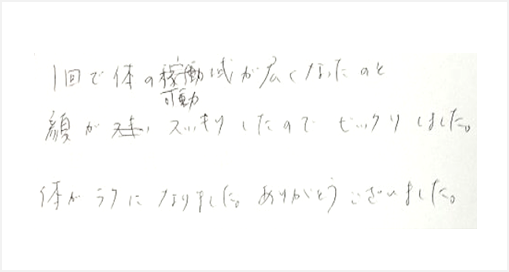 1回で体の可動域が広くなったのと
顔がスッキリしたのでビックリしました。
体がラクになりました。ありがとうございました。